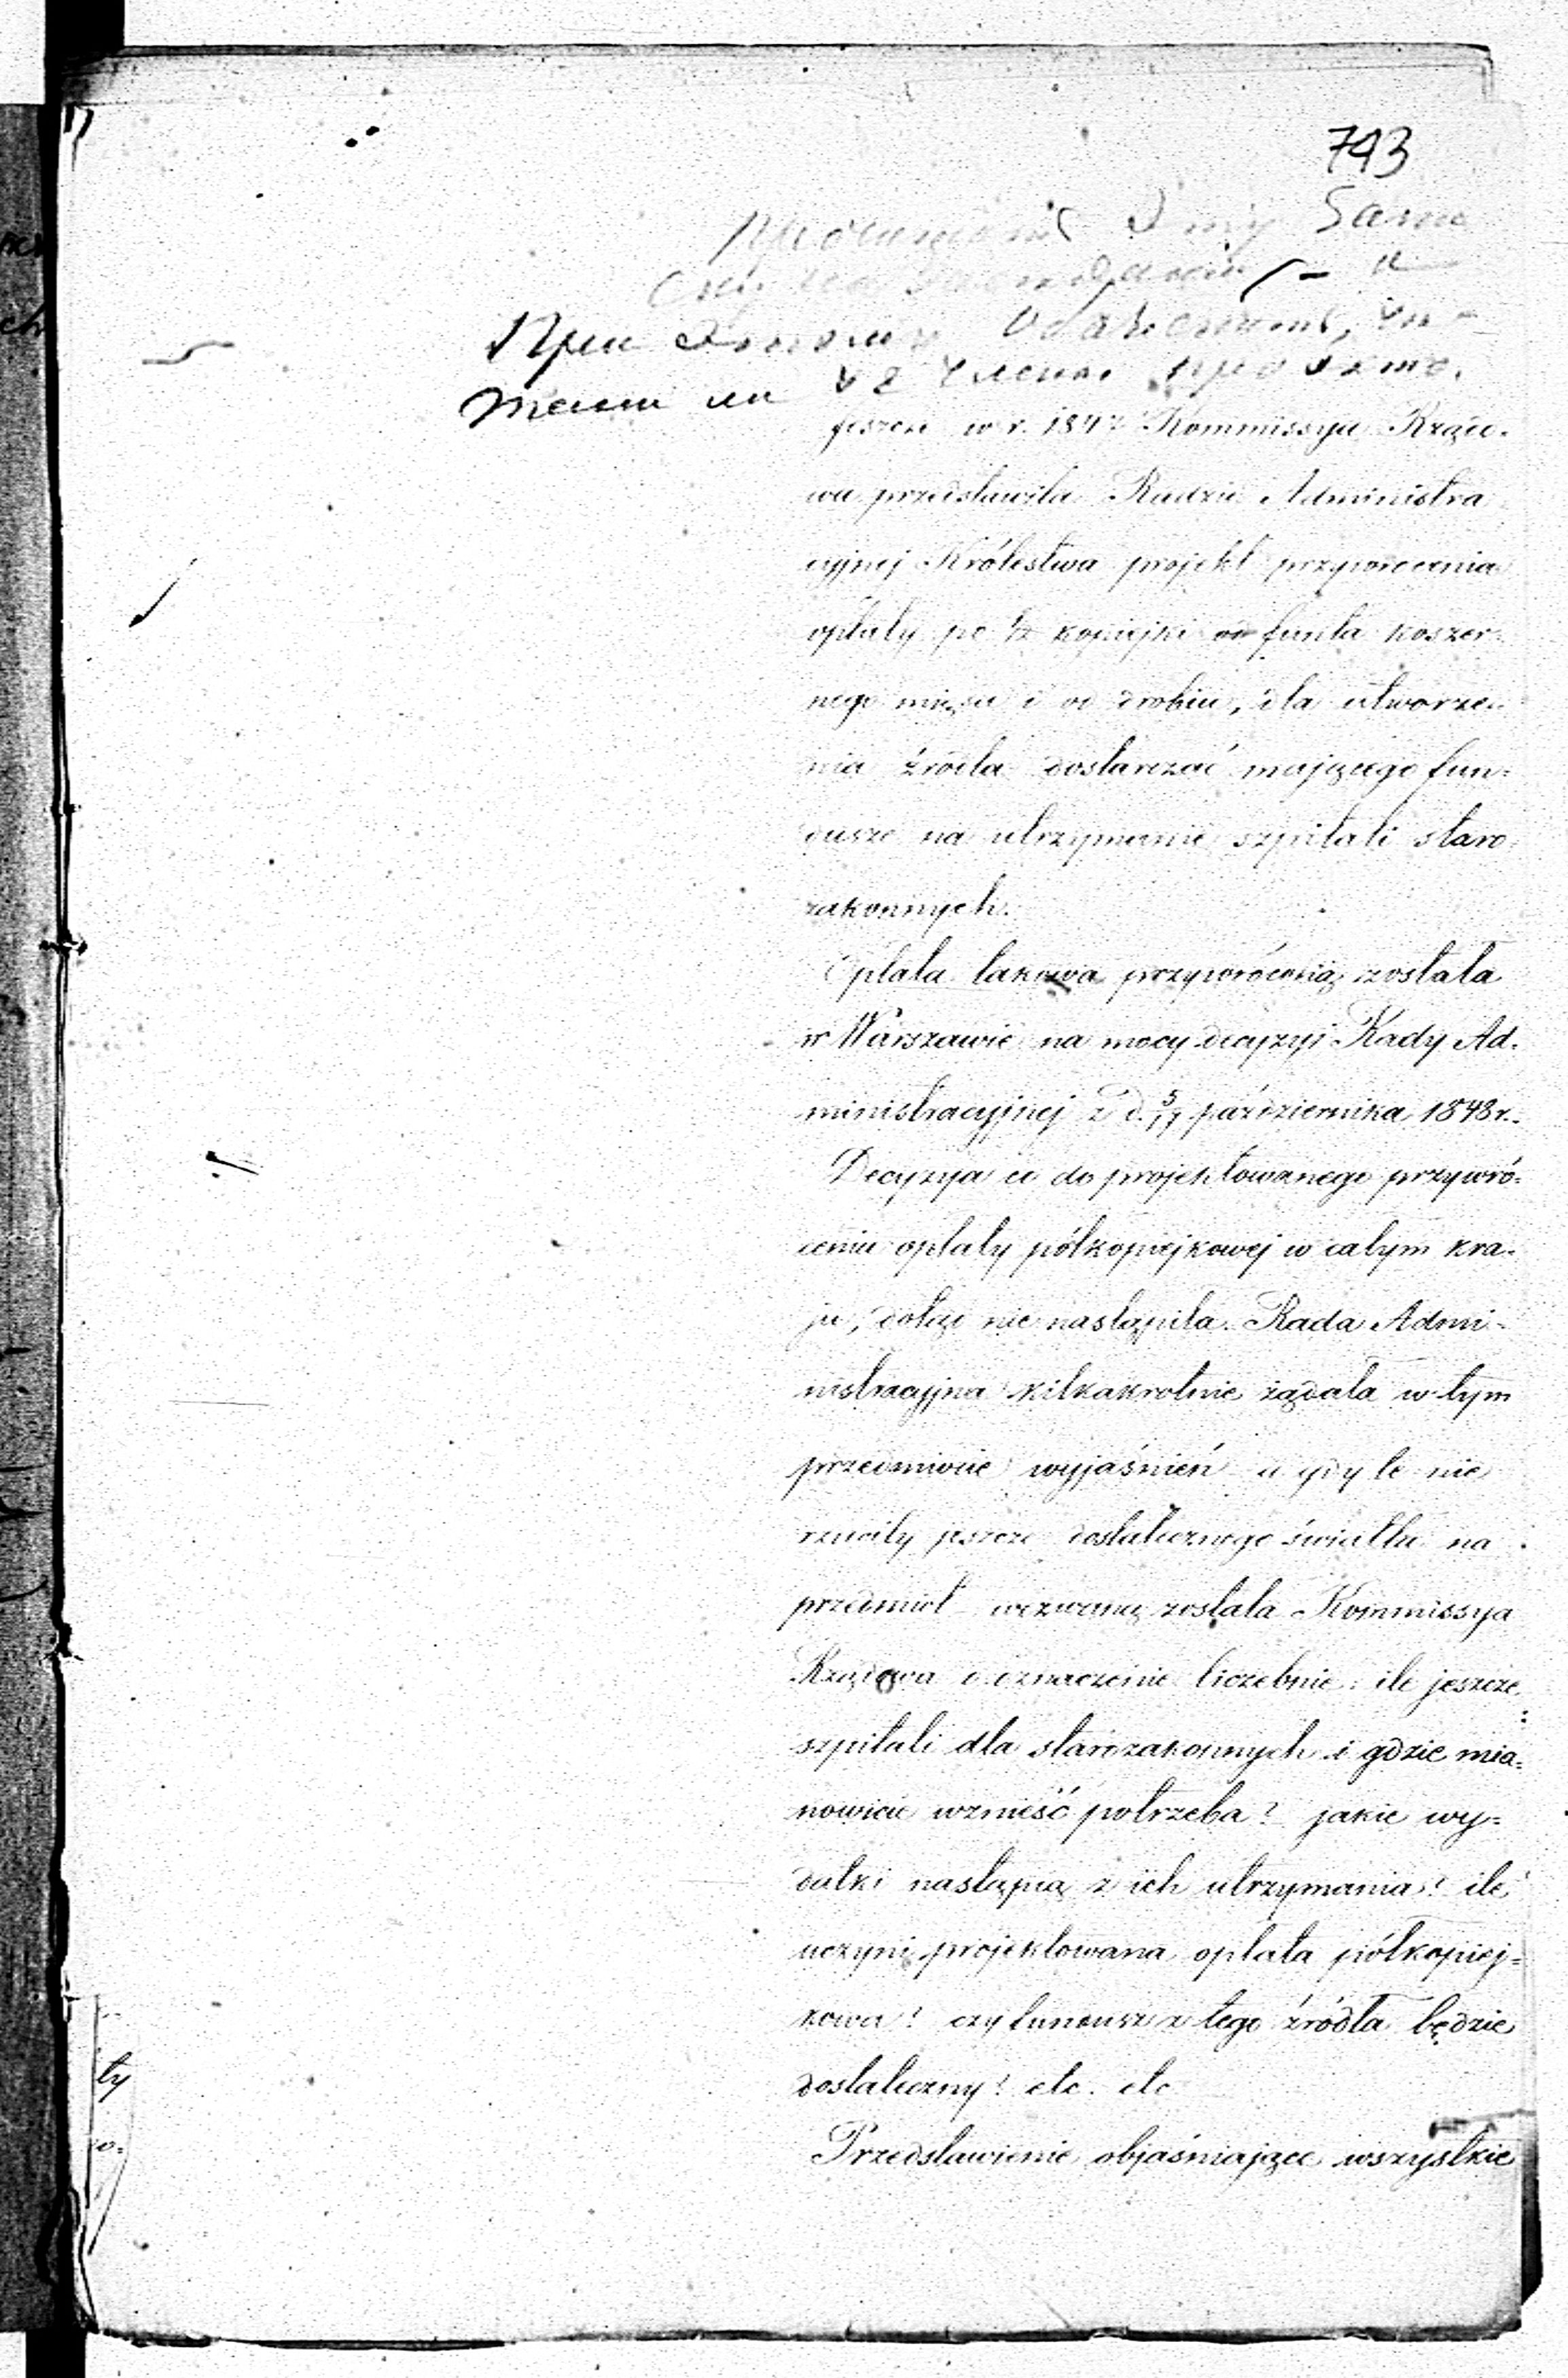 743
Jeszcze w r. 1847 Kommissya Rządo-
wa przedstawiła Radzie Administra
cyjnej Królestwa projekt przywrócenia
opłaty po 1/2 kopiejki od funta koszer-
nego mięsa i od drobiu, dla utworze-
nia źródła dostarczać mającego fun-
dusze na utrzymanie szpitali staro-
zakonnych.
Opłata takowa przywróconą została
w Warszawie na mocy decyzyi Rady Ad-
ministracyjnej z d. 5/17 października 1848 r.
Decyzya co do projektowanego przywró-
cenia opłaty półkopiejkowej w całym kra-
ju, dotąd nie nastąpiła. Rada Admi-
nistracyjna kilkakrotnie żądała w tym
przedmiocie wyjaśnień a gdy te nie
rzuciły jeszcze dostatecznego światła na
przedmiot wezwaną została Kommissya
Rządowa o oznaczenie liczebnie: ile jeszcze
szpitali dla starozakonnych i gdzie mia-
nowicie wznieść potrzeba? jakie wy-
datki nastąpią z ich utrzymania? ile
uczyni projektowana opłata półkopiej-
kowa? czy fundusz z tego źródła będzie
dostateczny? etc. etc
Przedstawienie objaśniające wszystkie